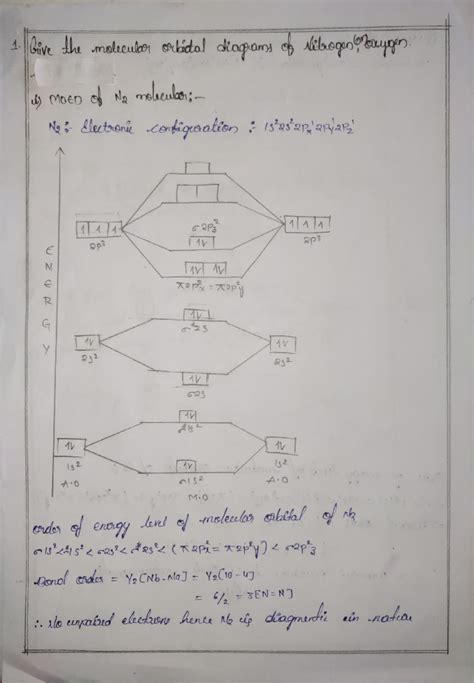 1. Give the molecular orbital diagrams of Nitrogen, Oxygen.
i) MOED of N2 molecular:-
N2:- Electronic configuration :- 1s² 2s² 2Px¹ 2Py¹ 2Pz¹
σ2p²z
1 1 1
1 1 1
2p³
1V
2p³
1V 1V
π2p²x = π2p²y
ENERGY
1V
σ*2s
1V
1V
2s²
2s²
1V
σ2s
1V
1V
1V
1s²
1V
1s²
A.O
σ1s²
A.O
M.O
order of energy level of molecular orbital of N2
σ1s² < σ*1s² < σ2s² < σ*2s² < (π2p²x = π2p²y) < σ2p²z
Bond order = 1/2 [Nb - Na] = 1/2 [10 - 4]
= 6/2 = 3 [N≡N]
∴ No unpaired electrons hence N2 is diagmentic in nation